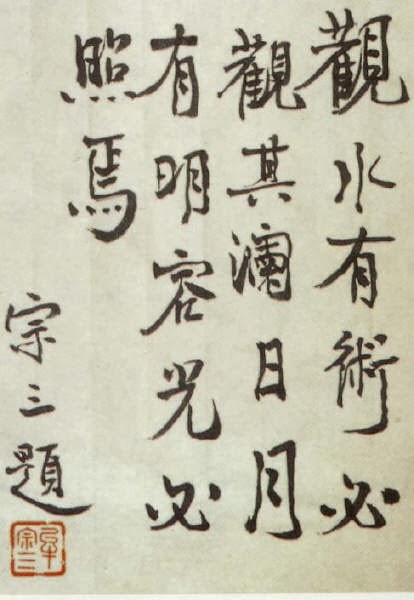 觀水有術必
觀其瀾日月
有明容光必
照焉
宗三題
牟宗三